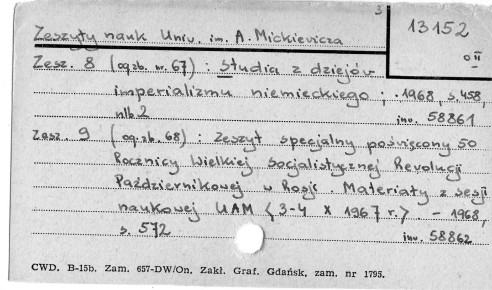 3
13152
Zeszyty nauk Univ. im. A. Mickievicza
0 II
Zesz. 8 (og.zb. nr. 67) : Studia z dziejów
imperializmu niemieckiego ; . 1968, s. 458,
nlb. 2
inv. 58861
Zesz. 9 (og.zb. 68) : Zeszyt specjalny poświęcony 50
Rocznicy Wielkiej Socjalistycznej Revolucji
Październikowej w Rosji. Materiały z sesji
naukowej UAM <3-4 X 1967 r.> - 1968,
s. 572
inv. 58862
CWD. B-15b. Zam. 657-DW/On. Zakł. Graf. Gdańsk, zam. nr 1795.